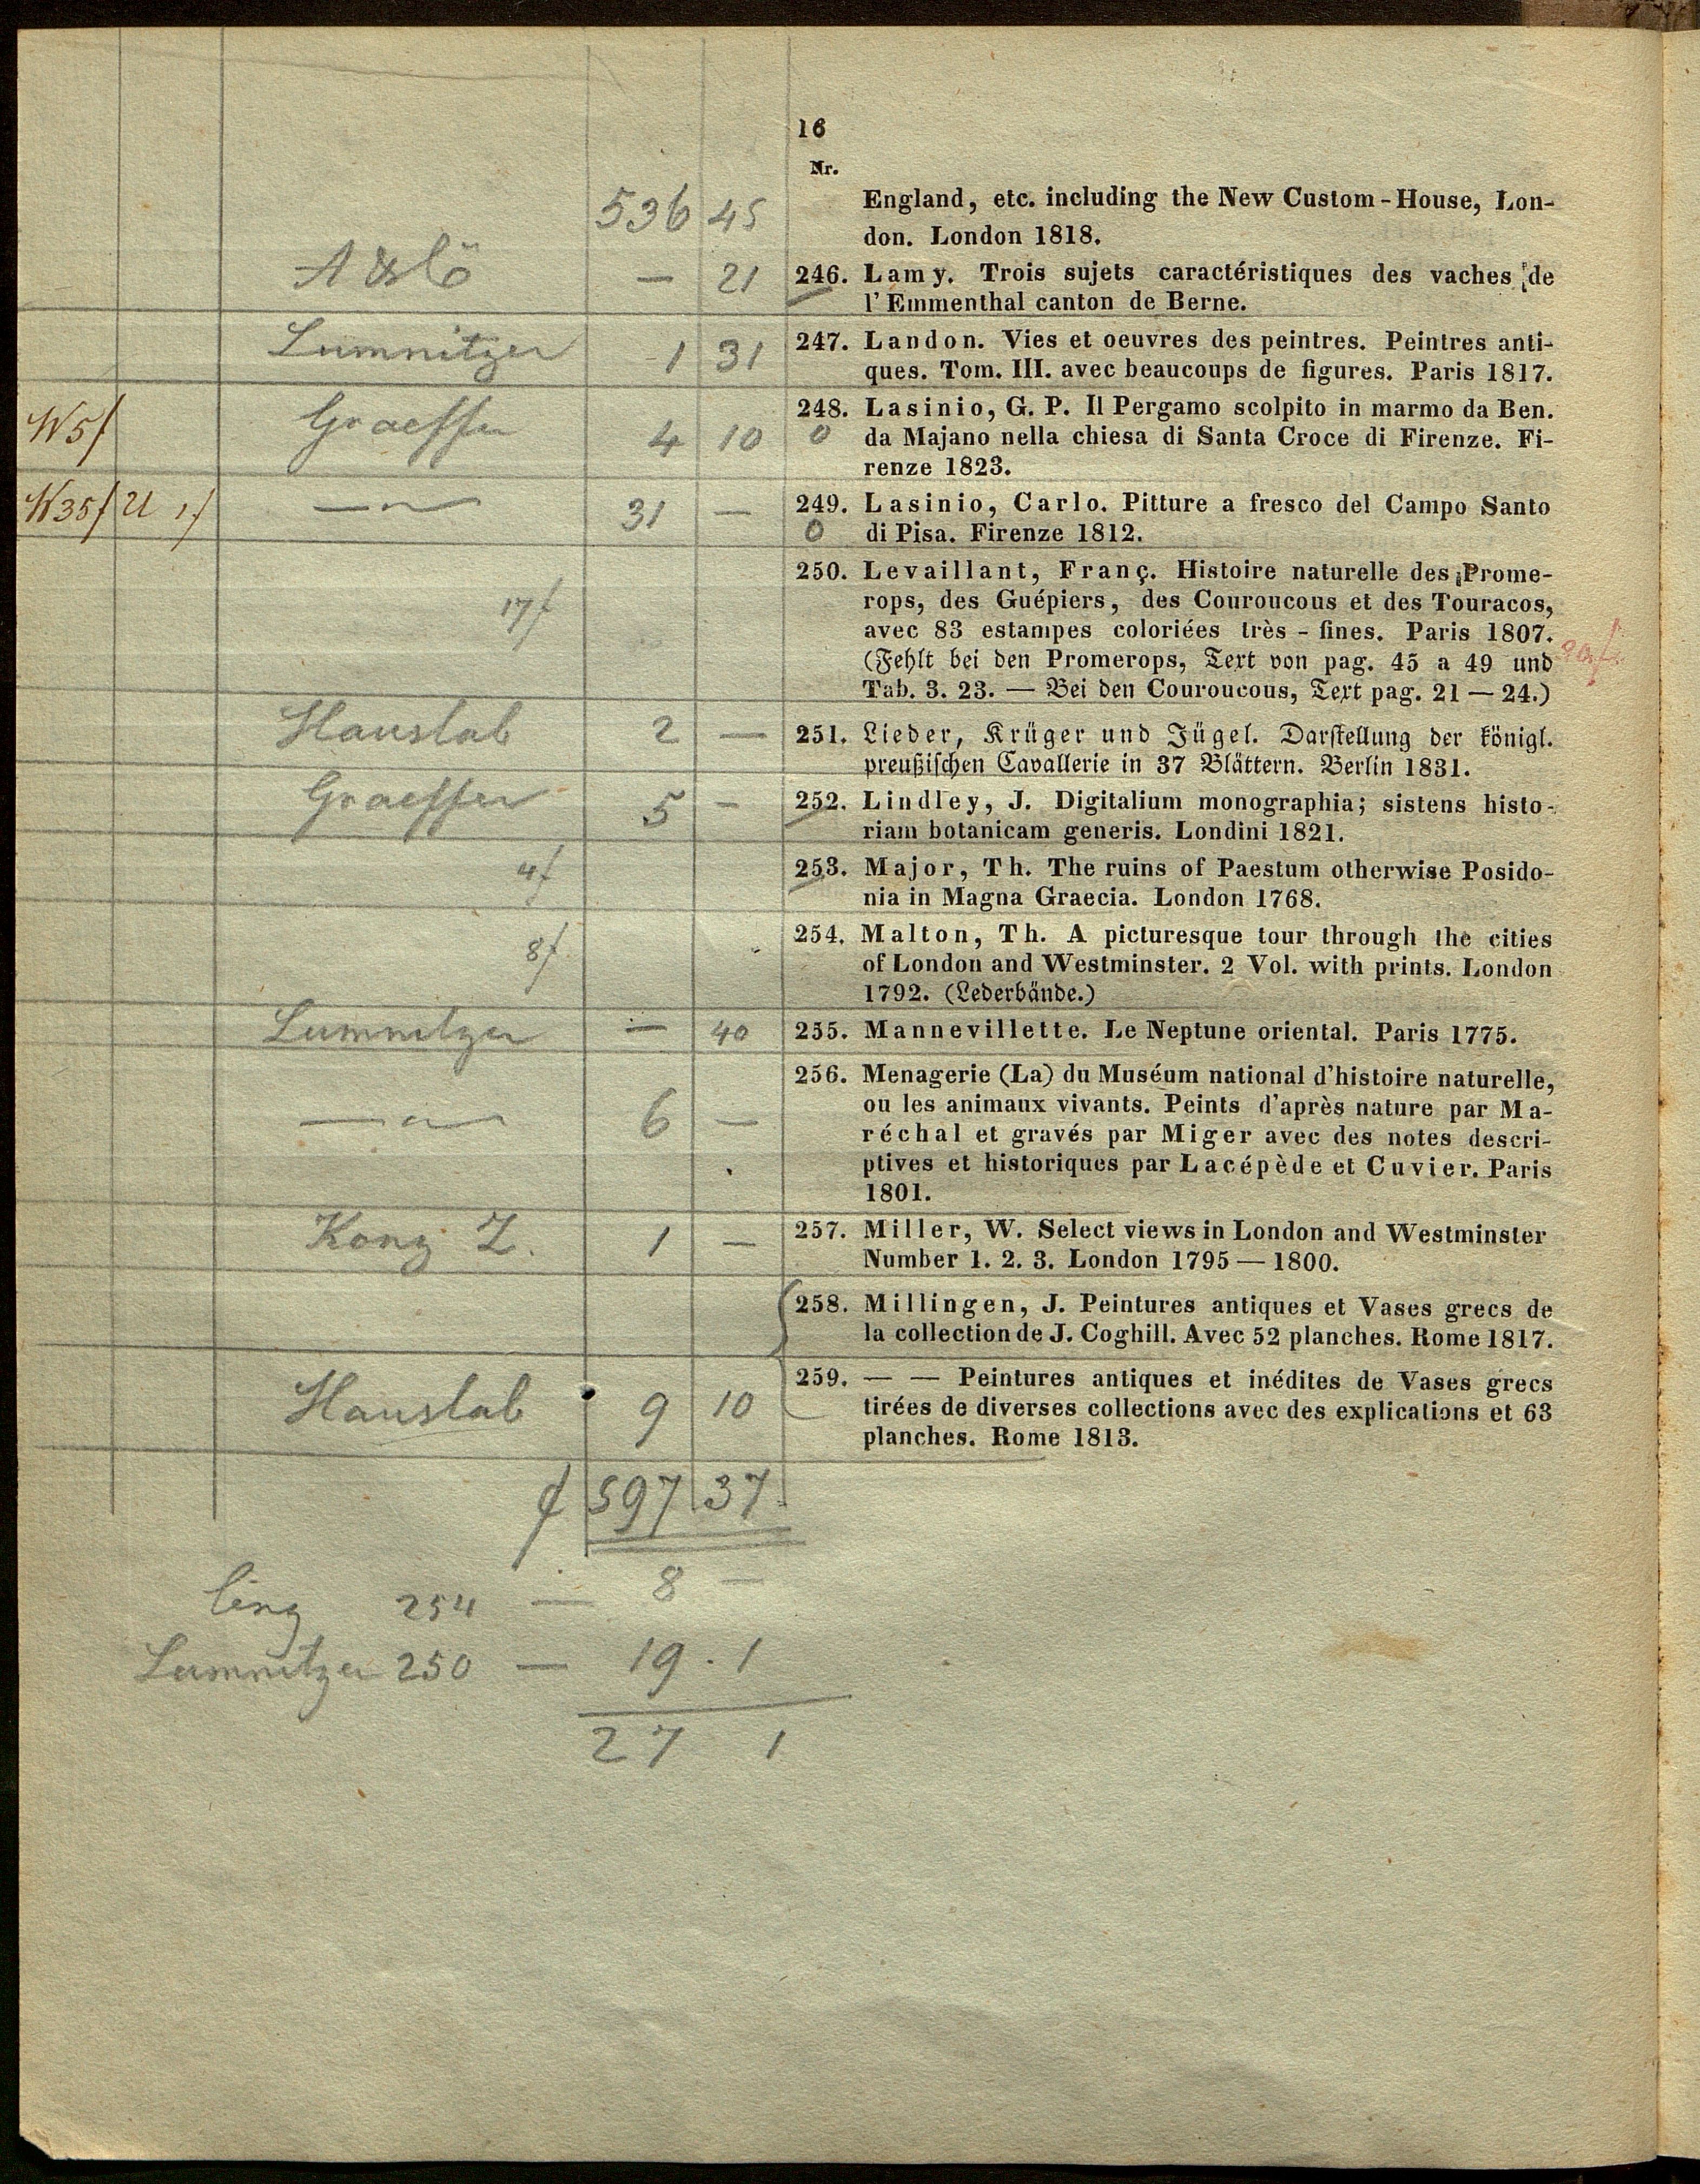 16
Nr.
536 45
England, etc. including the New Custom-House, Lon-
don. London 1818.
— 21
246. Lamy. Trois sujets caractéristiques des vaches de
l'Emmenthal canton de Berne.
Lumnitzer 1 31
247. Landon. Vies et oeuvres des peintres. Peintres anti-
ques. Tom. III. avec beaucoups de figures. Paris 1817.
W5f Graeffer 4 10
248. Lasinio, G. P. Il Pergamo scolpito in marmo da Ben.
0 da Majano nella chiesa di Santa Croce di Firenze. Fi-
renze 1823.
W35f U 1f 31 —
249. Lasinio, Carlo. Pitture a fresco del Campo Santo
0 di Pisa. Firenze 1812.
17f
250. Levaillant, Franç. Histoire naturelle des Prome-
rops, des Guépiers, des Couroucous et des Touracos,
avec 83 estampes coloriées très-fines. Paris 1807.
(Fehlt bei den Promerops, Text von pag. 45 a 49 und
Tab. 3. 23. — Bei den Couroucous, Text pag. 21—24.)
Hauslab 2 —
251. Lieder, Krüger und Jügel. Darstellung der königl.
preußischen Cavallerie in 37 Blättern. Berlin 1831.
Graeffer 5 —
252. Lindley, J. Digitalium monographia; sistens histo-
riam botanicam generis. Londini 1821.
4f
253. Major, Th. The ruins of Paestum otherwise Posido-
nia in Magna Graecia. London 1768.
8f
254. Malton, Th. A picturesque tour through the cities
of London and Westminster. 2 Vol. with prints. London
1792. (Lederbände.)
Lumnitzer — 40
255. Mannevillette. Le Neptune oriental. Paris 1775.
6 —
256. Menagerie (La) du Muséum national d'histoire naturelle,
ou les animaux vivants. Peints d'après nature par Ma-
réchal et gravés par Miger avec des notes descri-
ptives et historiques par Lacépède et Cuvier. Paris
1801.
Z. 1 —
257. Miller, W. Select views in London and Westminster
Number 1. 2. 3. London 1795—1800.
258. Millingen, J. Peintures antiques et Vases grecs de
la collection de J. Coghill. Avec 52 planches. Rome 1817.
Hauslab 9 10
259. — — Peintures antiques et inédites de Vases grecs
tirées de diverses collections avec des explications et 63
planches. Rome 1813.
f 597 37
254 — 8 —
Lumnitzer 250 — 19 . 1
27 1